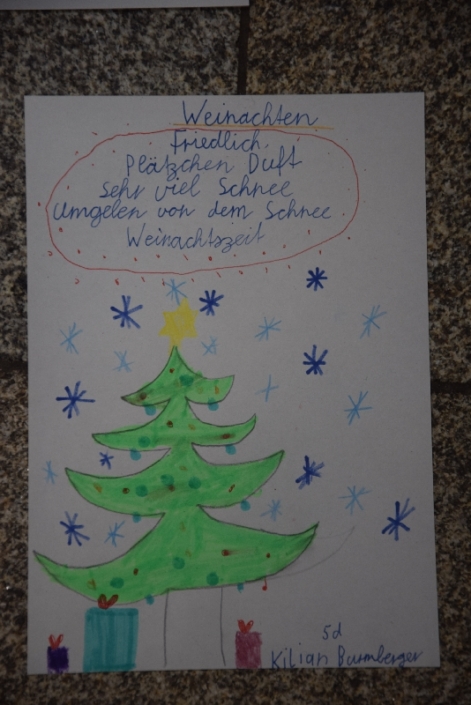 Weinachten
Friedlich,
Plätzchen Duft
Sehr viel Schnee
Umgelen von dem Schnee
Weinachtszeit
5d
Kilian Burmberger